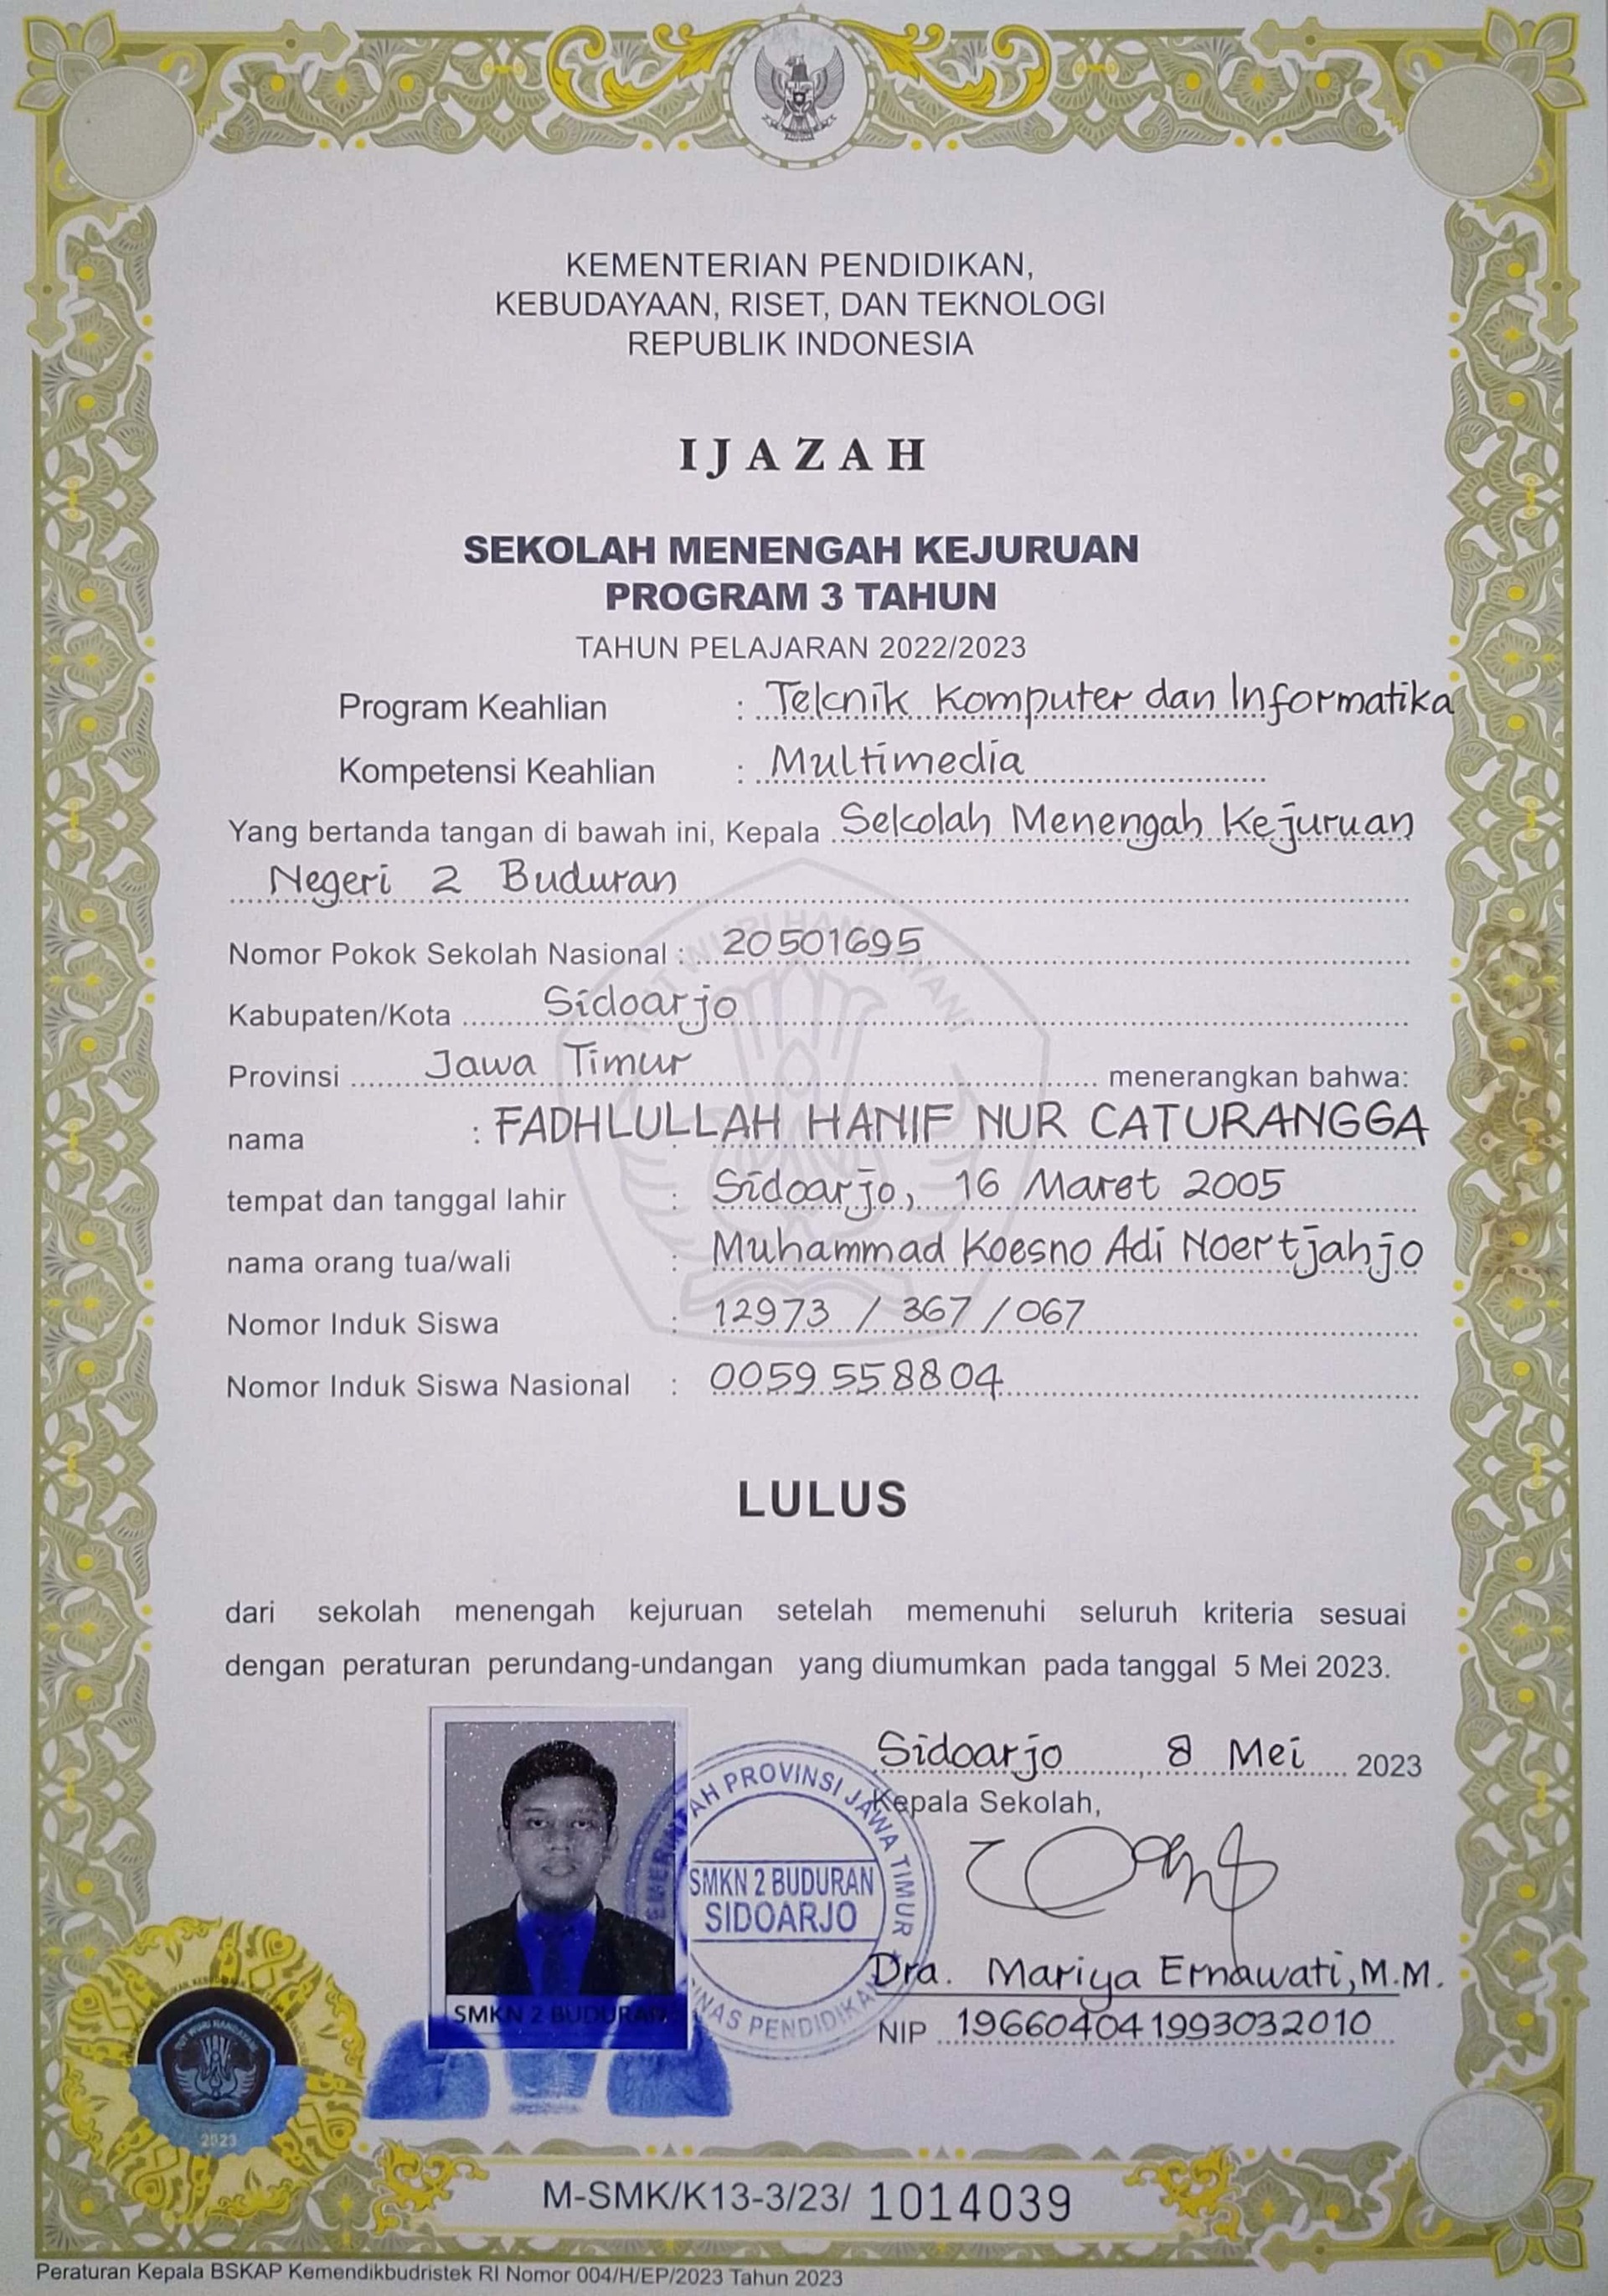 KEMENTERIAN PENDIDIKAN,
KEBUDAYAAN, RISET, DAN TEKNOLOGI
REPUBLIK INDONESIA
IJAZAH
SEKOLAH MENENGAH KEJURUAN
PROGRAM 3 TAHUN
TAHUN PELAJARAN 2022/2023
Program Keahlian : Teknik Komputer dan Informatika
Kompetensi Keahlian : Multimedia
Yang bertanda tangan di bawah ini, Kepala Sekolah Menengah Kejuruan
Negeri 2 Buduran
Nomor Pokok Sekolah Nasional : 20501695
Kabupaten/Kota Sidoarjo
Provinsi Jawa Timur menerangkan bahwa:
nama : FADHLULLAH HANIF NUR CATURANGGA
tempat dan tanggal lahir : Sidoarjo, 16 Maret 2005
nama orang tua/wali : Muhammad Koesno Adi Noertjahjo
Nomor Induk Siswa : 12973 / 367 / 067
Nomor Induk Siswa Nasional : 0059558804
LULUS
dari sekolah menengah kejuruan setelah memenuhi seluruh kriteria sesuai
dengan peraturan perundang-undangan yang diumumkan pada tanggal 5 Mei 2023.
Sidoarjo, 8 Mei 2023
Kepala Sekolah,
PROVINSI JAWA TIMUR
SMKN 2 BUDURAN
SIDOARJO
PENDIDIKAN
Dra. Mariya Ernawati, M.M.
NIP 196604041993032010
SMKN 2 BUDURAN
TUT WURI HANDAYANI
2023
M-SMK/K13-3/23/ 1014039
Peraturan Kepala BSKAP Kemendikbudristek RI Nomor 004/H/EP/2023 Tahun 2023